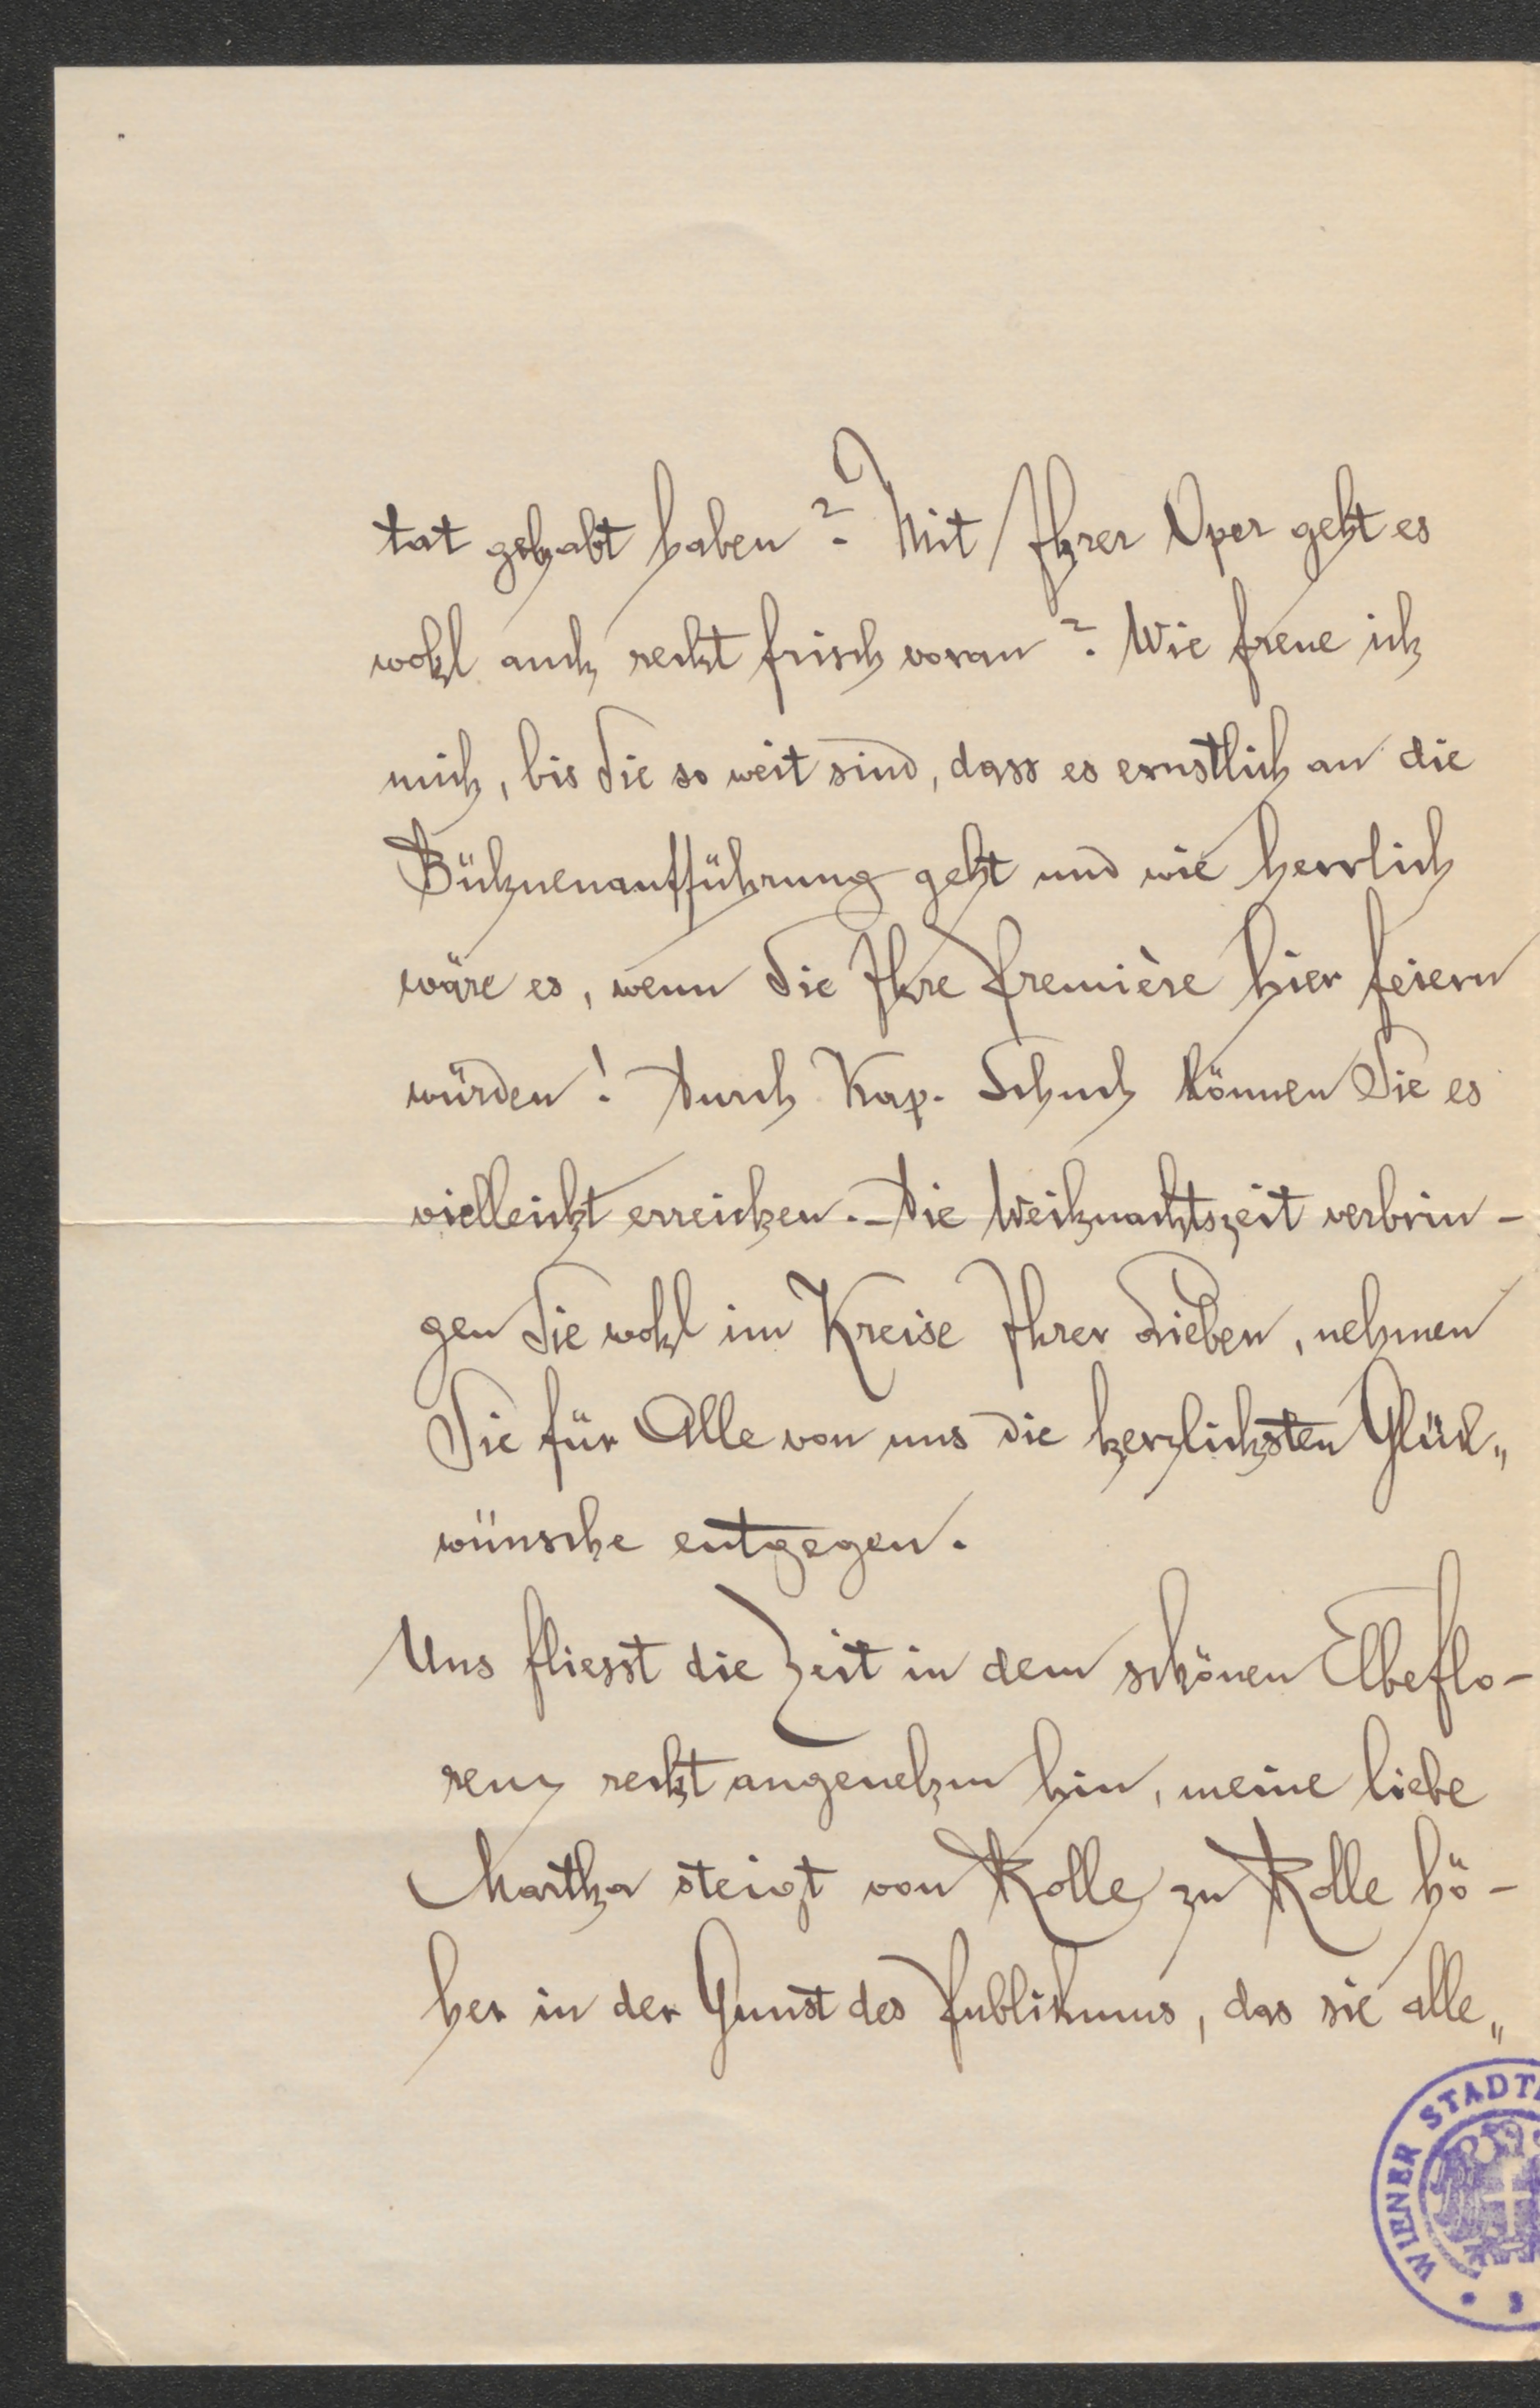 tat gehabt haben? Mit Ihrer Oper geht es
wohl auch recht frisch voran? Wie freue ich
mich, bis Sie so weit sind, dass es ernstlich an die
Bühnenaufführung geht und wie herrlich
wäre es, wenn Sie Ihre Première hier feiern
würden! Durch Kap. Schuch können Sie es
vielleicht erreichen. – Die Weihnachtszeit verbrin-
gen Sie wohl im Kreise Ihrer Lieben, nehmen
Sie für Alle von uns die herzlichsten Glück„
wünsche entgegen.
Uns fliesst die Zeit in dem schönen Elbeflo-
renz recht angenehm hin, meine liebe
Martha steigt von Rolle zu Rolle hö-
her in der Gunst des Publikums, das sie alle„
WIENER STADT